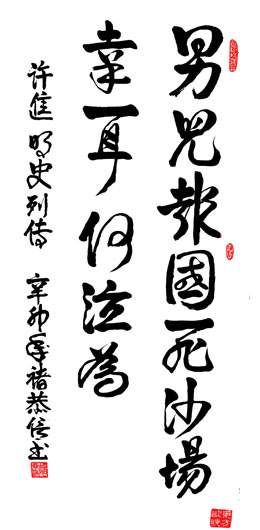 男兒報國死沙場
幸耳何泣為
许進 明史列传 辛卯年褚恭信书